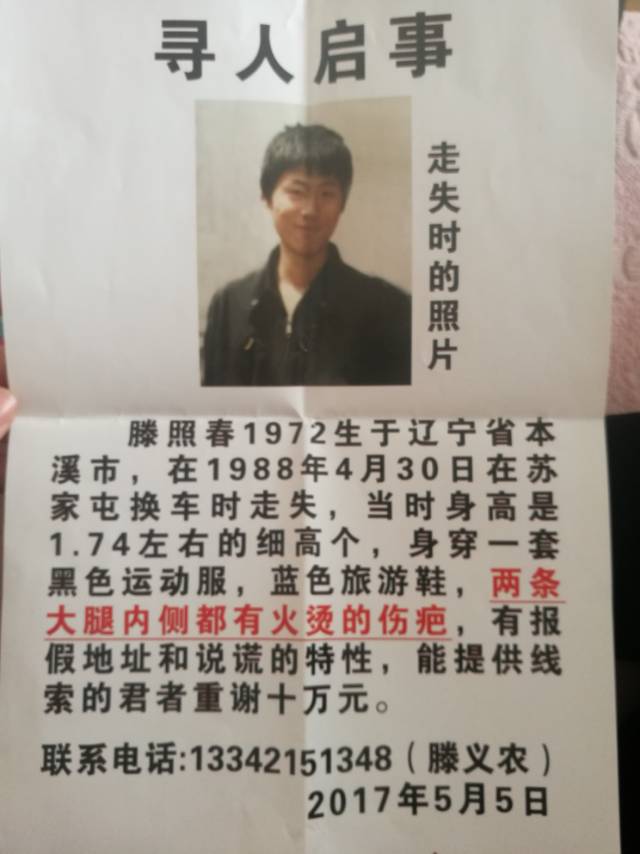 寻人启事
走失时的照片
滕照春1972生于辽宁省本
溪市，在1988年4月30日在苏
家屯换车时走失，当时身高是
1.74左右的细高个，身穿一套
黑色运动服，蓝色旅游鞋，两条
大腿内侧都有火烫的伤疤，有报
假地址和说谎的特性，能提供线
索的君者重谢十万元。
联系电话:13342151348（滕义农）
2017年5月5日